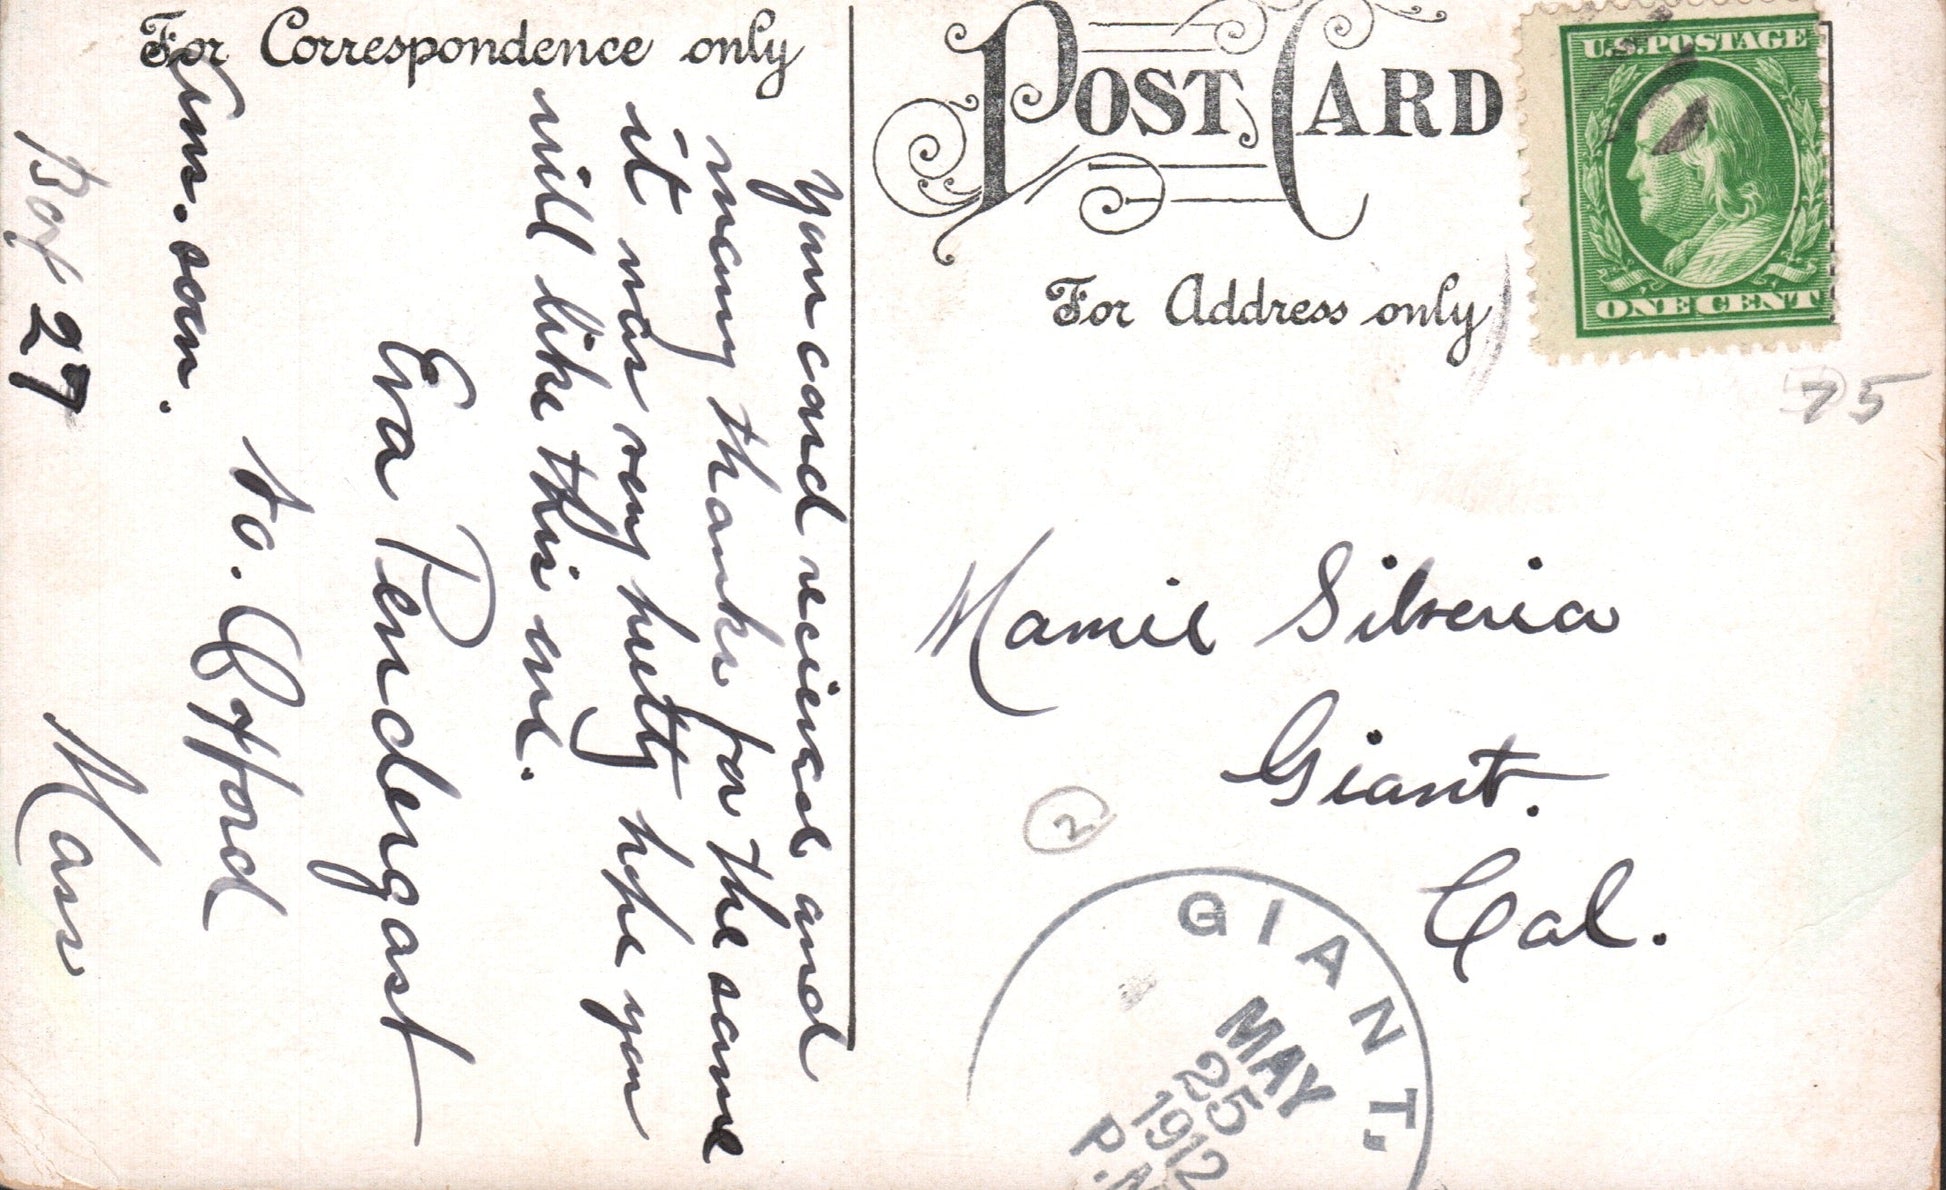 For Correspondence only
your card recieved and
many thanks for the same
it was very pretty hope you
will like this one.
Eva Pendergast
to. Offord
Ans. soon.
Box 27 Mass
POST CARD
For Address only
U.S. POSTAGE
ONE CENT
75
Mamie Silveria
Giant.
Cal.
2
GIANT,
MAY
25
1912
P.M